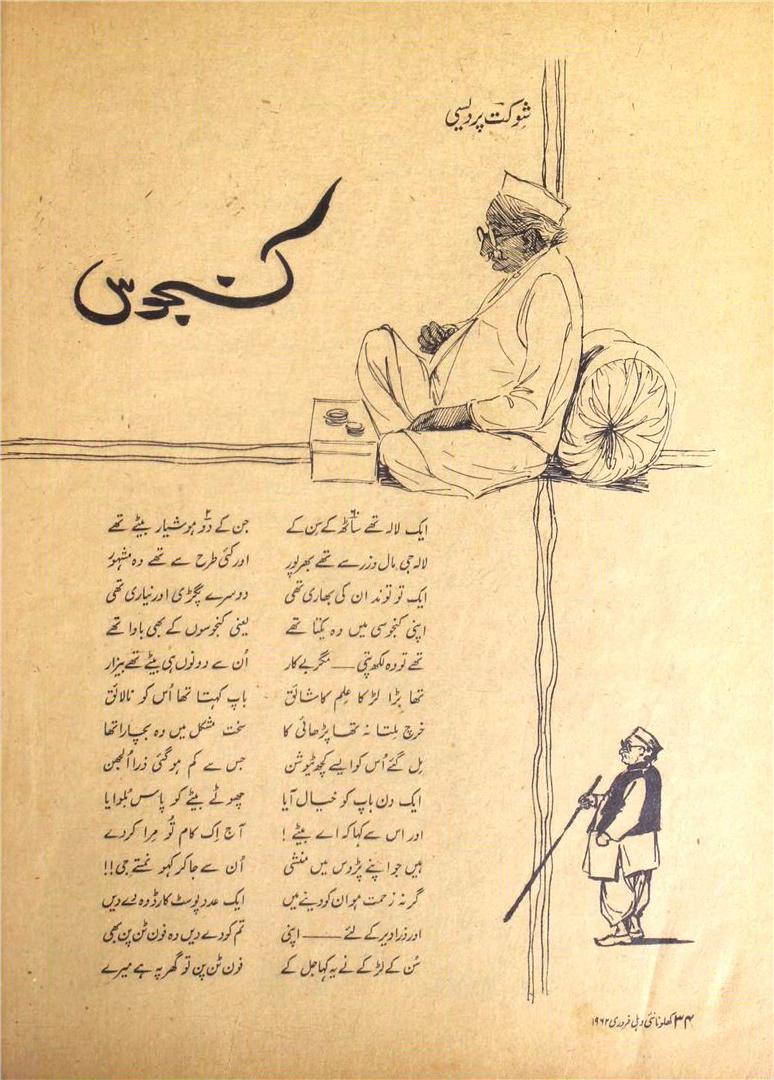 شوکت پردیسی
کنجوس
ایک لالہ تھے ساٹھ ۶۰ کے سِن کے جن کے دو ۲ ہوشیار بیٹے تھے
لالہ جی مال و زر سے تھے بھرپور اور کئی طرح سے تھے وہ مشہور
ایک تو توند ان کی بھاری تھی دوسرے پگڑی اور نیاری تھی
اپنی کنجوسی میں وہ یکتا تھے یعنی کنجوسوں کے بھی باوا تھے
تھے تو وہ لکھ پتی — مگر بے کار اُن سے دونوں ہی بیٹے تھے بیزار
تھا بڑا لڑکا عِلم کا شائق باپ کہتا تھا اُس کو نالائق
خرچ ملتا نہ تھا پڑھائی کا سخت مشکل میں وہ بچارا تھا
مِل گئے اُس کو ایسے کچھ ٹیوشن جس سے کم ہو گئی ذرا اُلجھن
ایک دن باپ کو خیال آیا چھوٹے بیٹے کو پاس بُلوایا
اور اس سے کہا کہ اے بیٹے ! آج اِک کام تُو مِرا کر دے
ہیں جو اپنے پڑوس میں منشی اُن سے جا کر کہو نمستے جی!!
گر نہ زحمت ہو ان کو دینے میں ایک عدد پوسٹ کارڈ وہ دے دیں
اور ذرا دیر کے لئے — اپنی تم کو دے دیں وہ فون ٹن پن بھی
سُن کے لڑکے نے یہ کہا جل کے فون ٹن پن تو گھر پہ ہے میرے
۳۴ کھلونا نئی دہلی فروری ۱۹۶۲